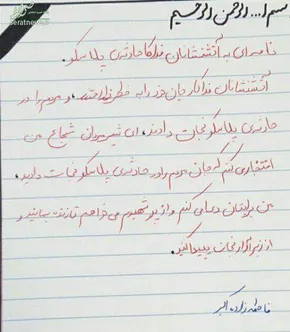 بسم ا... الرحمن الرحیم
seratnews
نامه‌ای به آتشنشانان فداکار حادثه‌ی پلاسکو.
آتشنشانان فداکار جان خود را به خطر انداختند، و مردم را در
حادثه‌ی پلاسکو نجات دادند، ای شیر مردان شجاع من
افتخار می کنم که جان مردم را در حادثه‌ی پلاسکو نجات دادید،
من برایتان دعا می کنم و از پروردگارم می خواهم تا زنده بمانید و
از زیر آوار نجات پیدا کنید.
فاطمه زاده اکبر